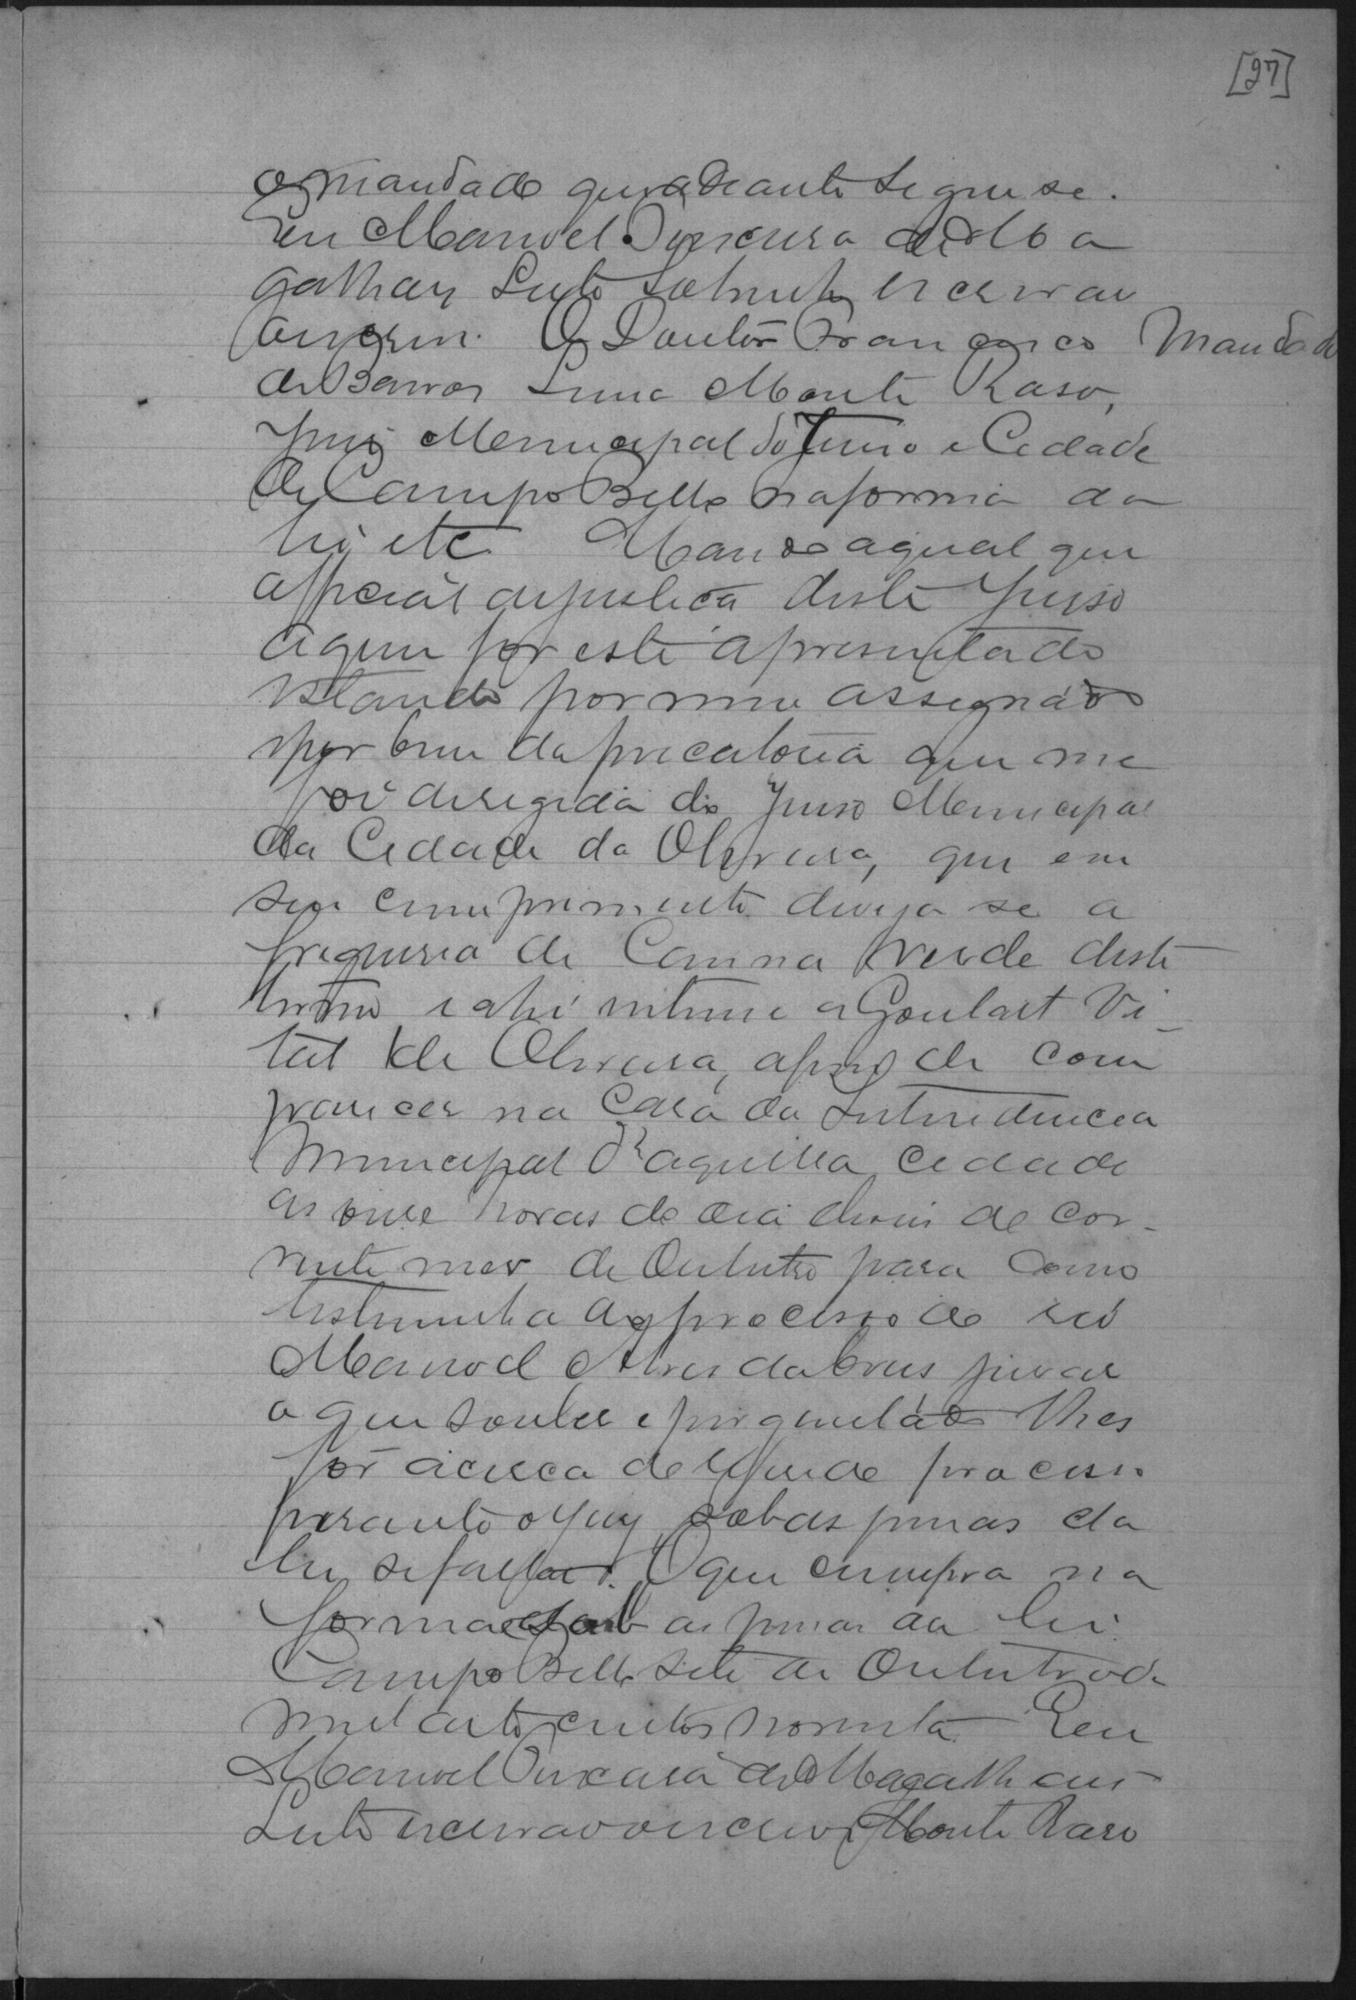 [27]
o mandado que adeante segue se.
Eu Manoel Pereira de Ma
galhaes Leite Sobrinho escrivao
o escrevi. O Doutor Francisco
Mandado
de Barros Lima Monte Raso,
Juiz Municipal do Termo e Cidade
de Campo Bello na forma da
lei etc. Mando aqual quer
official de justiça deste Juiso
a quem for este apresentado
estando por mim assignado
que em da precatoria que me
foi deregida do Juiso Municipal
da Cidade da Oliveira, que em
seu cumprimento dirija se a
freguesia de Canna Verde deste
termo e ahi intime a Goulart Vi-
tal de Oliveira, afim de com
parecer na Casa da Intendencia
Municipal d'aquella Cidade
as onze horas do dia de cor-
rente mez de Outubro para como
testemunha do processo do reo
Manoel Alves da Cruz jurar
o que souber e perguntado lhes
for acerca do processo
perante o Juiz sob as penas da
lei se faltar. O que cumpra na
forma e sob as penas da lei.
Campo Bello sete de Outubro de
mil oito centos noventa Eu
Manoel Pereira de Magalhaes
Leite escrivao o escrevi Monte Raso